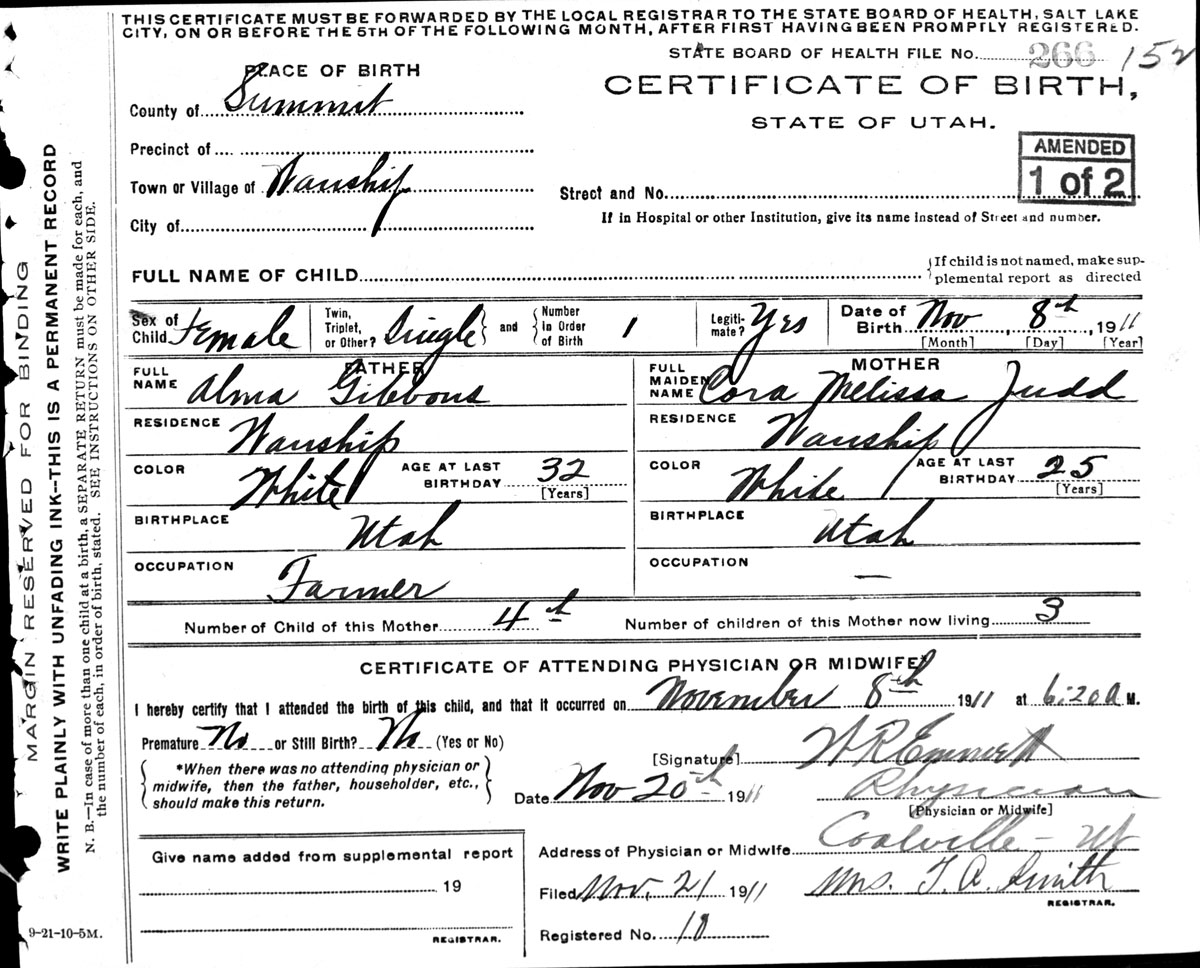 THIS CERTIFICATE MUST BE FORWARDED BY THE LOCAL REGISTRAR TO THE STATE BOARD OF HEALTH, SALT LAKE
CITY, ON OR BEFORE THE 5TH OF THE FOLLOWING MONTH, AFTER FIRST HAVING BEEN PROMPTLY REGISTERED.
STATE BOARD OF HEALTH FILE No. 266 152
PLACE OF BIRTH
CERTIFICATE OF BIRTH,
STATE OF UTAH.
County of Summit
Precinct of
Town or Village of Wanship
City of
AMENDED
1 of 2
Street and No.
If in Hospital or other Institution, give its name instead of Street and number.
FULL NAME OF CHILD
If child is not named, make sup-
plemental report as directed
Sex of Child Female
Twin, Triplet, or Other? Single and Number in Order of Birth 1
Legiti-mate? Yes
Date of Birth Nov, 8th, 1911
[Month] [Day] [Year]
FATHER
FULL NAME Alma Gibbons
RESIDENCE Wanship
COLOR White AGE AT LAST BIRTHDAY 32
[Years]
BIRTHPLACE Utah
OCCUPATION Farmer
MOTHER
FULL MAIDEN NAME Cora Melissa Judd
RESIDENCE Wanship
COLOR White AGE AT LAST BIRTHDAY 25
[Years]
BIRTHPLACE Utah
OCCUPATION —
Number of Child of this Mother 4th Number of children of this Mother now living 3
CERTIFICATE OF ATTENDING PHYSICIAN OR MIDWIFE
I hereby certify that I attended the birth of this child, and that it occurred on November 8th 1911 at 6:20 a M.
Premature No or Still Birth? No (Yes or No)
*When there was no attending physician or
midwife, then the father, householder, etc.,
should make this return.
[Signature] W R Emmett
Date Nov 20th 1911 Physician
[Physician or Midwife]
Address of Physician or Midwife Coalville - Ut
Filed Nov. 21 1911 Mrs. T. A. Smith
REGISTRAR.
Registered No. 18
Give name added from supplemental report
19
REGISTRAR.
MARGIN RESERVED FOR BINDING
WRITE PLAINLY WITH UNFADING INK--THIS IS A PERMANENT RECORD
N. B.—In case of more than one child at a birth, a SEPARATE RETURN must be made for each, and
the number of each, in order of birth, stated. SEE INSTRUCTIONS ON OTHER SIDE.
9-21-10-5M.